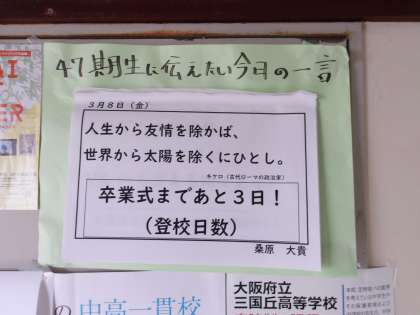 47期生に伝えたい今日の一言
3月8日（金）
人生から友情を除かば、
世界から太陽を除くにひとし。
キケロ（古代ローマの政治家）
卒業式まであと3日！
（登校日数）
桑原 大貴
の中高一貫校
大阪府立
三国丘高等学校